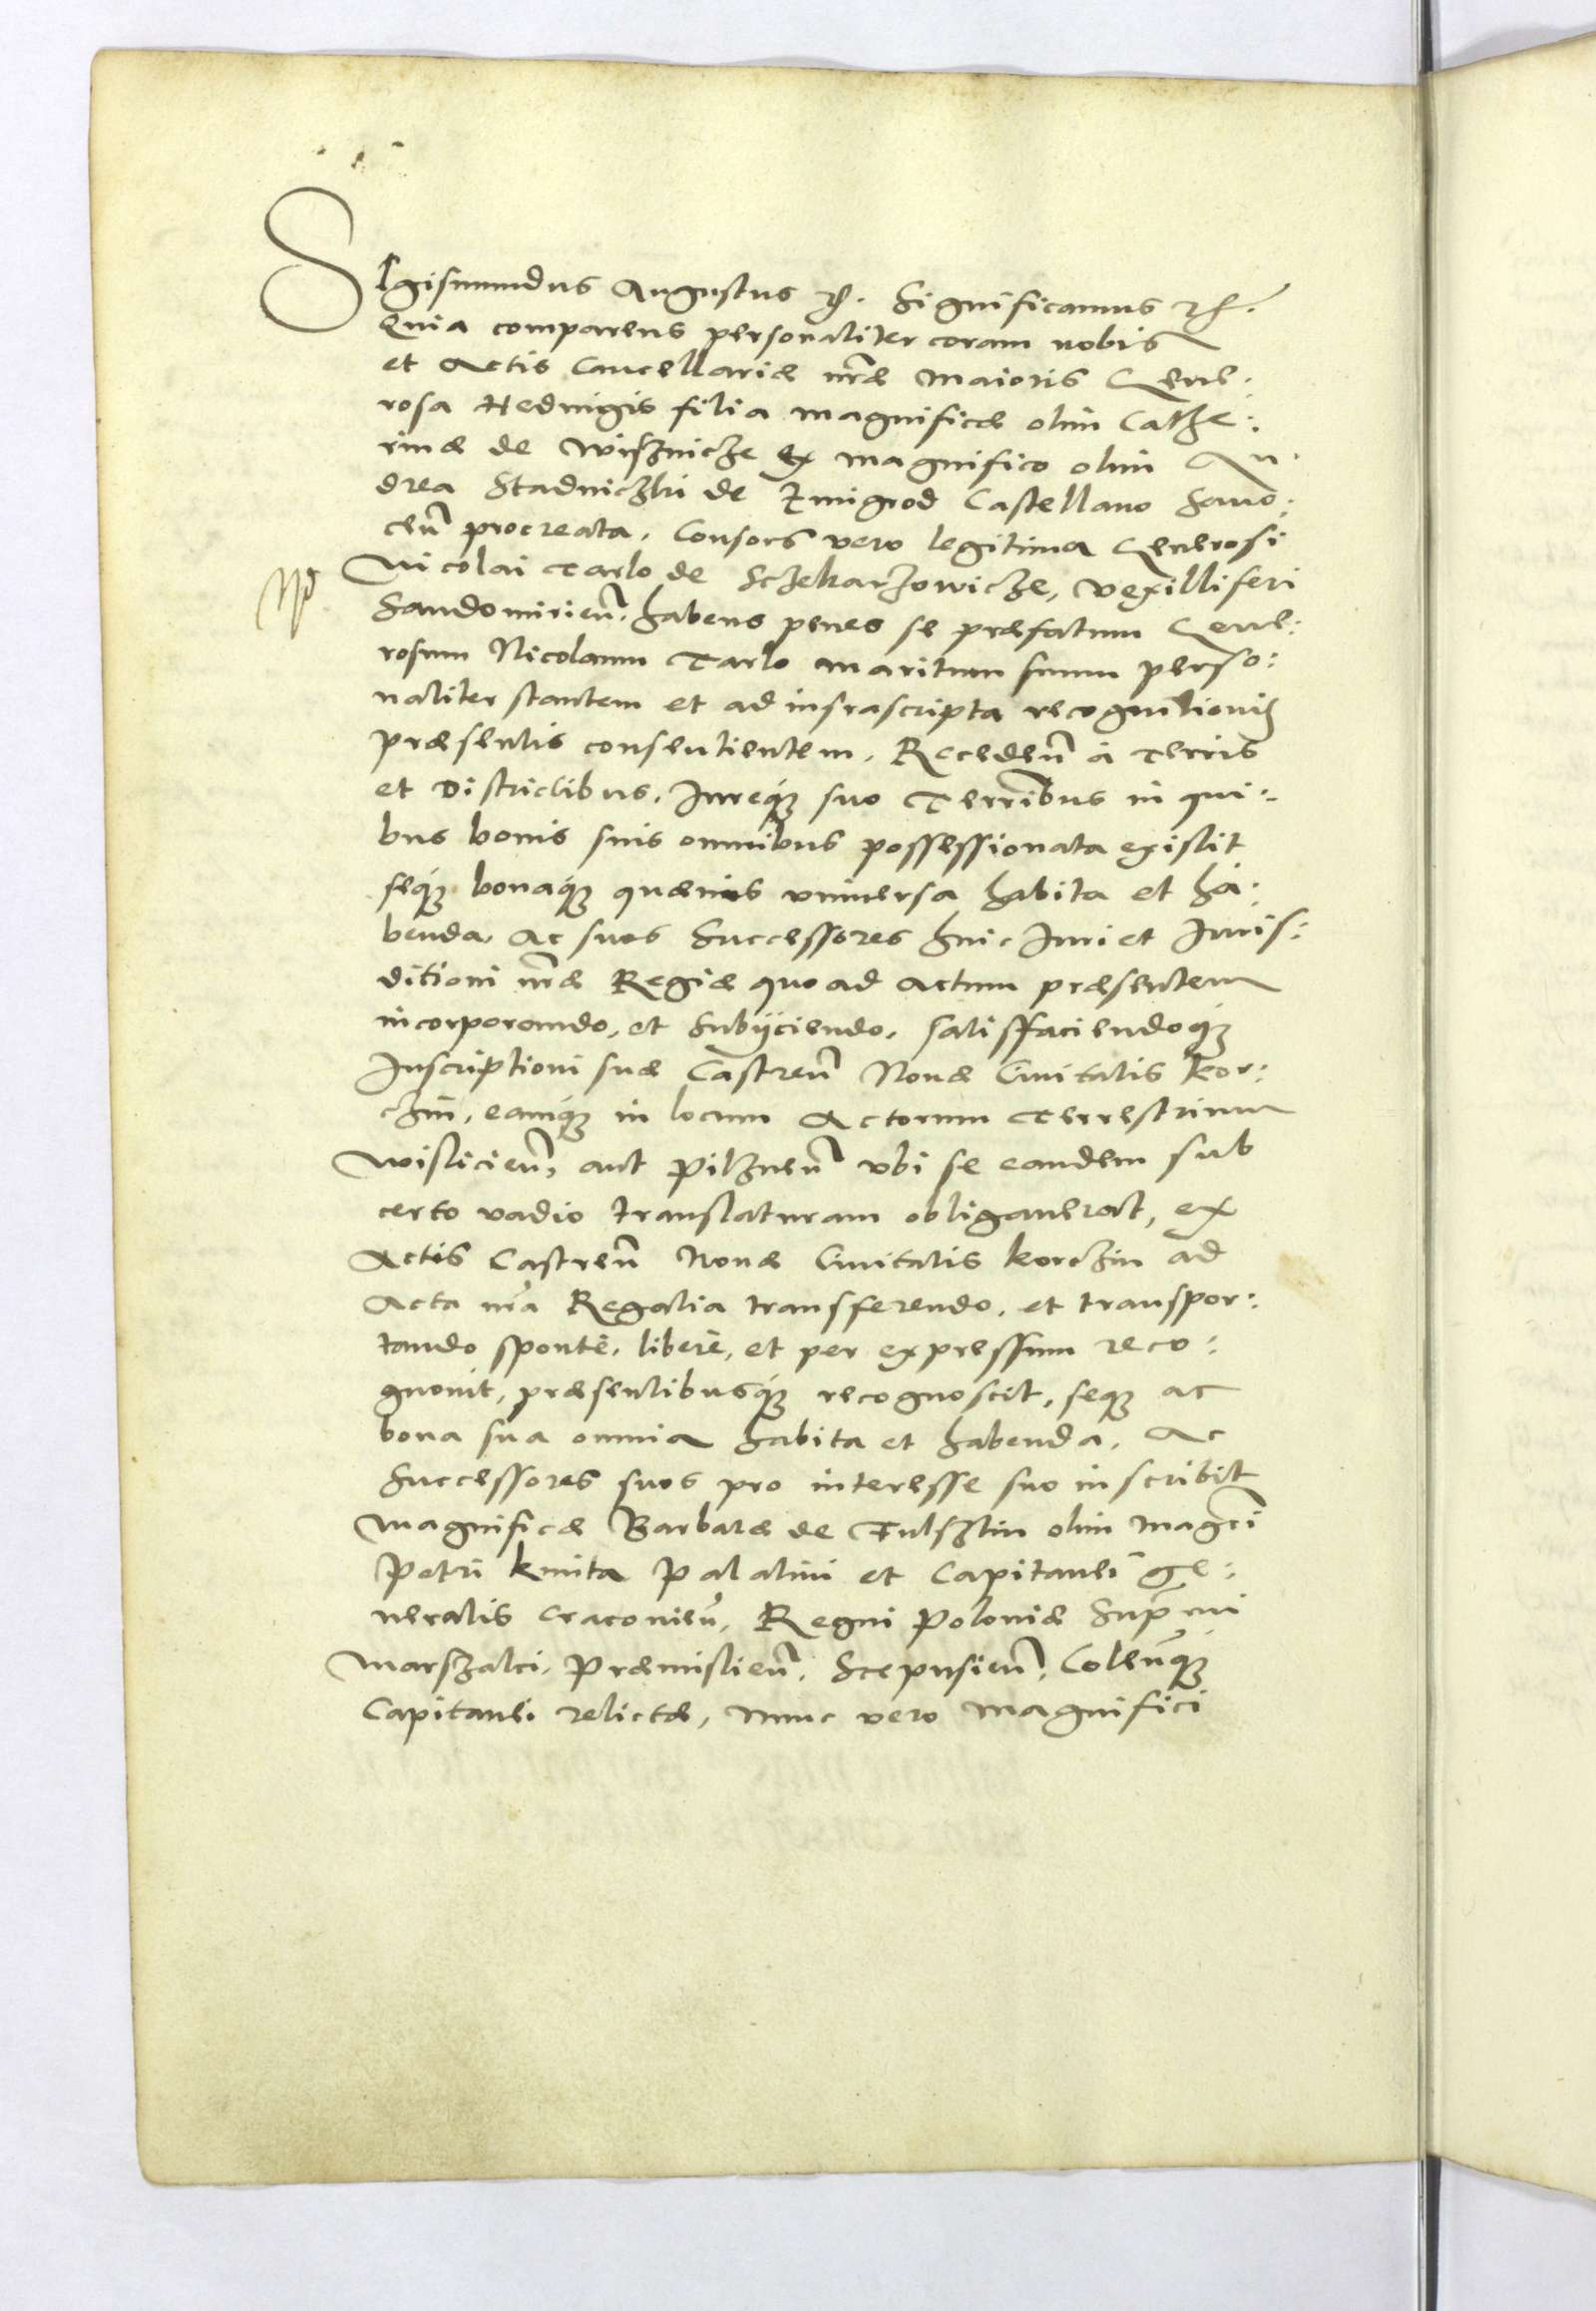 SIgismundus Augustus etc. Significamus etc.
Quia comparens personaliter coram nobis
et Actis Cancellariæ nr̃æ Maioris Gene:
rosa Heduigis filia magnificæ olim Cathe:
rinæ de Wisznicze ex magnifico olim An:
drea Stadniczki de Zmigrod Castellano Sano:
ceñ procreata. Consors vero legitima Generosi
Nicolai Tarlo de Sczekarzowicze, Vexilliferi
Sandomirieñ. habens penes se præfatum Gene:
rosum Nicolaum Tarlo maritum suum perso:
naliter stantem et ad infrascripta recognitionis
præsentis consentientem. Recedeñ à Terris
et Districtibus. Iureq́ue suo Terr̃ibus in qui:
bus bonis suis omnibus possessionata existit
seq́ue bonaq́ue quæuis vniuersa habita et ha:
benda. Ac suos Successores huic Iuri et Iuris:
ditioni nr̃æ Regiæ quo ad actum præsentem
incorporando, et Subijciendo. satisfaciendoq́ue
Inscriptioni suæ Castreñ Nouæ Ciuitatis Kor:
czin, eamq́ue in locum Actorum Terrestrium
Wislicieñ, aut Pilzneñ vbi se eandem sub
certo vadio translaturam obligauerat, ex
Actis Castreñ Nouæ Ciuitatis Korczin ad
Acta nr̃a Regalia transferendo. et transpor:
tando sponte. libere, et per expressum reco:
gnouit, præsentibusq́ue recognoscit, seque ac
bona sua omnia habita et habenda. Ac
Successores suos pro interesse suo inscribit
Magnificæ Barbaræ de Fulsztin olim Magc̃i
Petri Kmita Palatini et Capitanei ge:
neralis Cracovieñ, Regni Poloniæ Supr̃mi
Marszalci, Præmislieñ. Scepusieñ, Coleñq́ue
Capitanei relictæ, nunc vero Magnifici